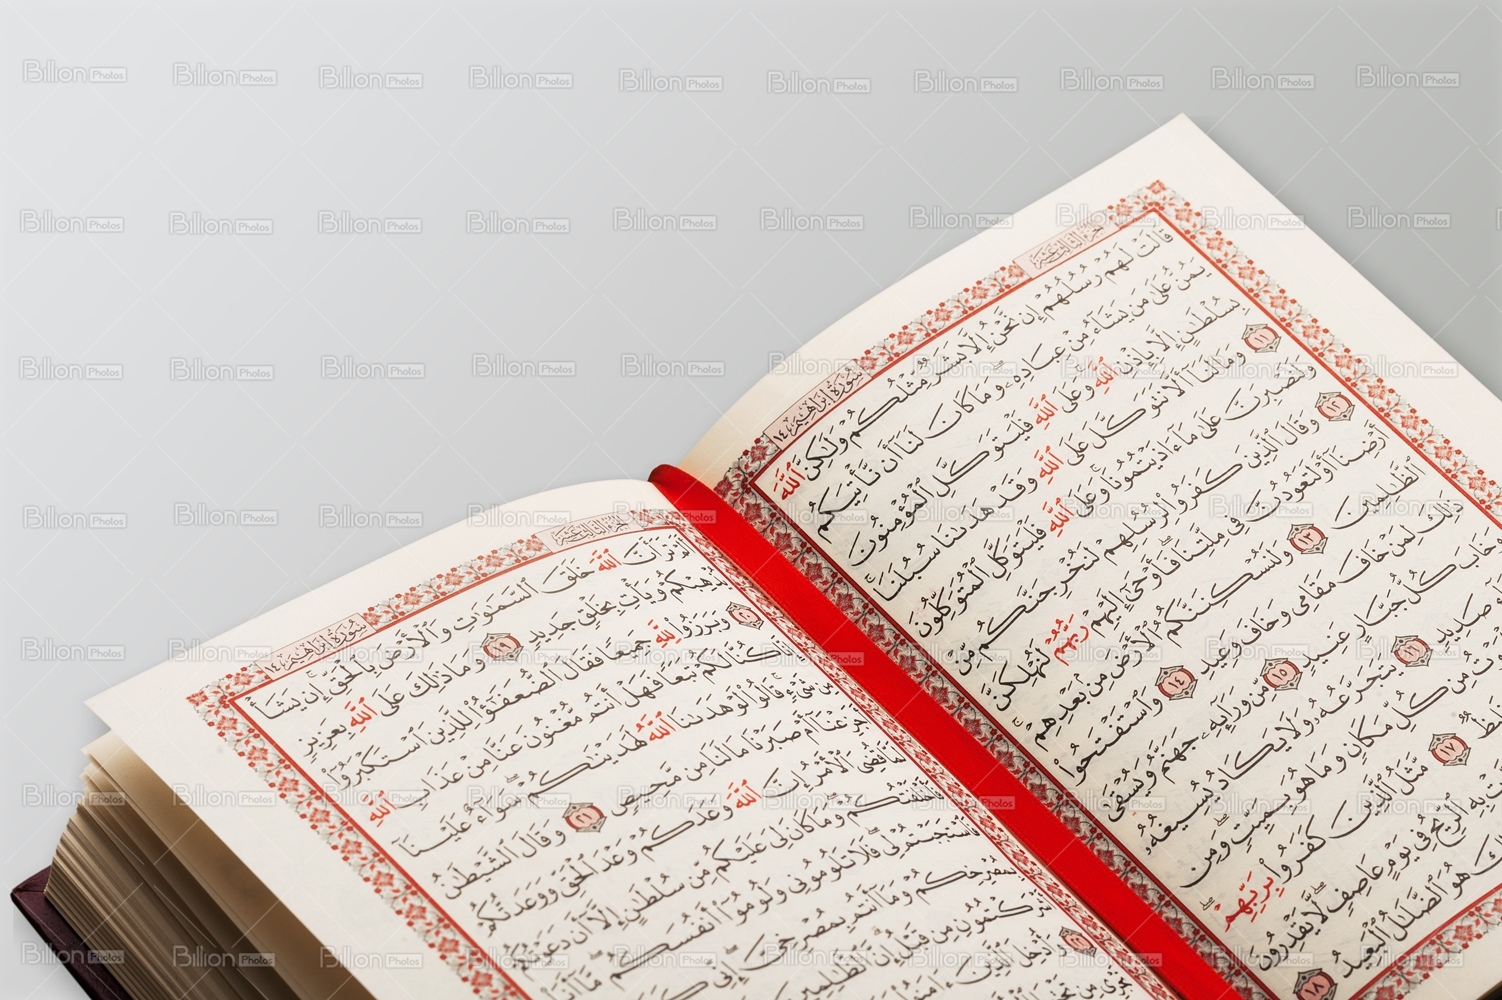 الجزء الثالث عشر
سُورَةُ إِبْرَاهِيمَ ١٤
قَالَتْ لَهُمْ رُسُلُهُمْ إِن نَّحْنُ إِلَّا بَشَرٌ مِّثْلُكُمْ وَلَٰكِنَّ ٱللَّهَ
يَمُنُّ عَلَىٰ مَن يَشَآءُ مِنْ عِبَادِهِۦ وَمَا كَانَ لَنَآ أَن نَّأْتِيَكُم
بِسُلْطَٰنٍ إِلَّا بِإِذْنِ ٱللَّهِ وَعَلَى ٱللَّهِ فَلْيَتَوَكَّلِ ٱلْمُؤْمِنُونَ
١١ وَمَا لَنَآ أَلَّا نَتَوَكَّلَ عَلَى ٱللَّهِ وَقَدْ هَدَىٰنَا سُبُلَنَا
وَلَنَصْبِرَنَّ عَلَىٰ مَآ ءَاذَيْتُمُونَا وَعَلَى ٱللَّهِ فَلْيَتَوَكَّلِ ٱلْمُتَوَكِّلُونَ
١٢ وَقَالَ ٱلَّذِينَ كَفَرُوا۟ لِرُسُلِهِمْ لَنُخْرِجَنَّكُم مِّنْ
أَرْضِنَآ أَوْ لَتَعُودُنَّ فِى مِلَّتِنَا فَأَوْحَىٰٓ إِلَيْهِمْ رَبُّهُمْ لَنُهْلِكَنَّ
ٱلظَّٰلِمِينَ ١٣ وَلَنُسْكِنَنَّكُمُ ٱلْأَرْضَ مِنۢ بَعْدِهِمْ
ذَٰلِكَ لِمَنْ خَافَ مَقَامِى وَخَافَ وَعِيدِ ١٤ وَٱسْتَفْتَحُوا۟
وَخَابَ كُلُّ جَبَّارٍ عَنِيدٍ ١٥ مِّن وَرَآئِهِۦ جَهَنَّمُ وَيُسْقَىٰ
صَدِيدٍ ١٦ يَتَجَرَّعُهُۥ وَلَا يَكَادُ يُسِيغُهُۥ
مِن كُلِّ مَكَانٍ وَمَا هُوَ بِمَيِّتٍ وَمِن
١٧ مَّثَلُ ٱلَّذِينَ كَفَرُوا۟ بِرَبِّهِمْ
بِهِ ٱلرِّيحُ فِى يَوْمٍ عَاصِفٍ لَّا يَقْدِرُونَ
هُوَ ٱلضَّلَٰلُ ٱلْبَعِيدُ ١٨
الجزء الثالث عشر
سُورَةُ إِبْرَاهِيمَ ١٤
أَلَمْ تَرَ أَنَّ ٱللَّهَ خَلَقَ ٱلسَّمَٰوَٰتِ وَٱلْأَرْضَ بِٱلْحَقِّ إِن يَشَأْ
يُذْهِبْكُمْ وَيَأْتِ بِخَلْقٍ جَدِيدٍ ١٩ وَمَا ذَٰلِكَ عَلَى ٱللَّهِ بِعَزِيزٍ
٢٠ وَبَرَزُوا۟ لِلَّهِ جَمِيعًا فَقَالَ ٱلضُّعَفَٰٓؤُا۟ لِلَّذِينَ ٱسْتَكْبَرُوٓا۟
كُنَّا لَكُمْ تَبَعًا فَهَلْ أَنتُم مُّغْنُونَ عَنَّا مِنْ عَذَابِ ٱللَّهِ
مِن شَىْءٍ قَالُوا۟ لَوْ هَدَىٰنَا ٱللَّهُ لَهَدَيْنَٰكُمْ سَوَآءٌ عَلَيْنَآ
أَجَزِعْنَآ أَمْ صَبَرْنَا مَا لَنَا مِن مَّحِيصٍ ٢١ وَقَالَ ٱلشَّيْطَٰنُ
لَمَّا قُضِىَ ٱلْأَمْرُ إِنَّ ٱللَّهَ وَعَدَكُمْ وَعْدَ ٱلْحَقِّ وَوَعَدتُّكُمْ
فَأَخْلَفْتُكُمْ وَمَا كَانَ لِىَ عَلَيْكُم مِّن سُلْطَٰنٍ إِلَّآ أَن دَعَوْتُكُمْ
فَٱسْتَجَبْتُمْ لِى فَلَا تَلُومُونِى وَلُومُوٓا۟ أَنفُسَكُم مَّآ أَنَا۠
بِمُصْرِخِكُمْ وَمَآ أَنتُم بِمُصْرِخِىَّ إِنِّى
أَشْرَكْتُمُونِ مِن قَبْلُ إِنَّ ٱلظَّٰلِمِينَ
٢٢ وَأُدْخِلَ ٱلَّذِينَ ءَامَنُوا۟
تَجْرِى مِن تَحْتِهَا